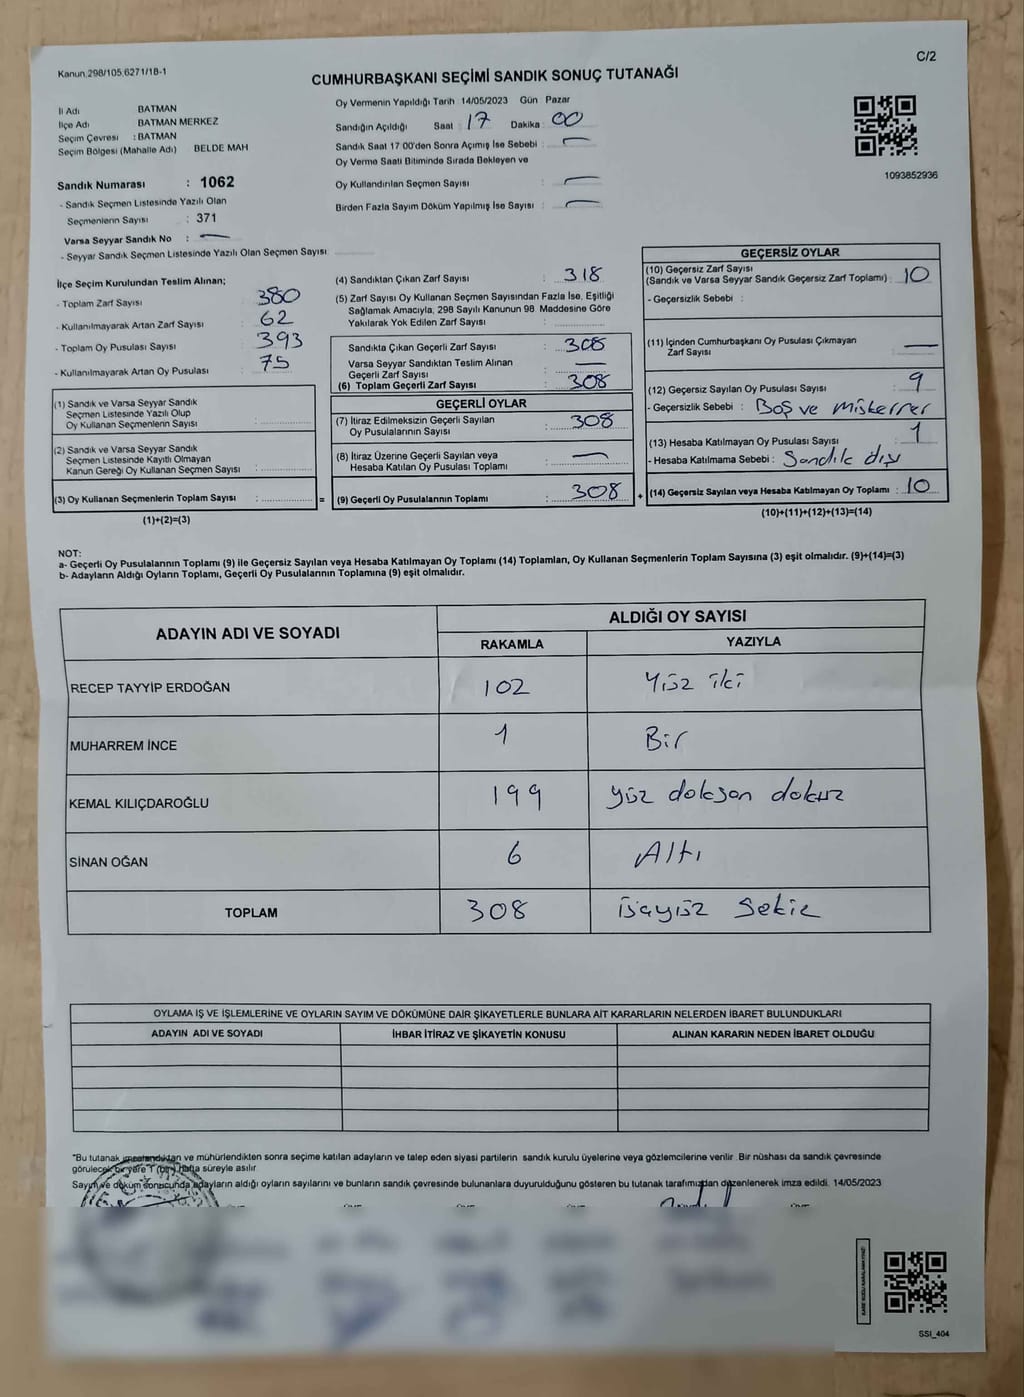 Kanun 298/105,6271/18-1
C/2
CUMHURBAŞKANI SEÇİMİ SANDIK SONUÇ TUTANAĞI
İl Adı BATMAN
İlçe Adı BATMAN MERKEZ
Seçim Çevresi : BATMAN
Seçim Bölgesi (Mahalle Adı) BELDE MAH
Sandık Numarası : 1062
- Sandık Seçmen Listesinde Yazılı Olan
Seçmenlerin Sayısı : 371
Varsa Seyyar Sandık No : —
- Seyyar Sandık Seçmen Listesinde Yazılı Olan Seçmen Sayısı
Oy Vermenin Yapıldığı Tarih 14/05/2023 Gün Pazar
Sandığın Açıldığı Saat 17 Dakika 00
Sandık Saat 17 00'den Sonra Açımış İse Sebebi : —
Oy Verme Saati Bitiminde Sırada Bekleyen ve
Oy Kullandırılan Seçmen Sayısı : —
Birden Fazla Sayım Döküm Yapılmış İse Sayısı : —
1093852936
İlçe Seçim Kurulundan Teslim Alınan;
- Toplam Zarf Sayısı 380
- Kullanılmayarak Artan Zarf Sayısı 62
- Toplam Oy Pusulası Sayısı 393
- Kullanılmayarak Artan Oy Pusulası 75
(1) Sandık ve Varsa Seyyar Sandık
Seçmen Listesinde Yazılı Olup
Oy Kullanan Seçmenlerin Sayısı :
(2) Sandık ve Varsa Seyyar Sandık
Seçmen Listesinde Kayıtlı Olmayan
Kanun Gereği Oy Kullanan Seçmen Sayısı :
(3) Oy Kullanan Seçmenlerin Toplam Sayısı : =
(1)+(2)=(3)
(4) Sandıktan Çıkan Zarf Sayısı : 318
(5) Zarf Sayısı Oy Kullanan Seçmen Sayısından Fazla İse, Eşitliği
Sağlamak Amacıyla, 298 Sayılı Kanunun 98 Maddesine Göre
Yakılarak Yok Edilen Zarf Sayısı :
Sandıkta Çıkan Geçerli Zarf Sayısı : 308
Varsa Seyyar Sandıktan Teslim Alınan
Geçerli Zarf Sayısı : —
(6) Toplam Geçerli Zarf Sayısı : 308
GEÇERLİ OYLAR
(7) İtiraz Edilmeksizin Geçerli Sayılan
Oy Pusulalarının Sayısı : 308
(8) İtiraz Üzerine Geçerli Sayılan veya
Hesaba Katılan Oy Pusulası Toplamı : —
(9) Geçerli Oy Pusulalarının Toplamı : 308 +
GEÇERSİZ OYLAR
(10) Geçersiz Zarf Sayısı
(Sandık ve Varsa Seyyar Sandık Geçersiz Zarf Toplamı) : 10
- Geçersizlik Sebebi :
(11) İçinden Cumhurbaşkanı Oy Pusulası Çıkmayan
Zarf Sayısı : —
(12) Geçersiz Sayılan Oy Pusulası Sayısı : 9
- Geçersizlik Sebebi : Boş ve Mükerrer
(13) Hesaba Katılmayan Oy Pusulası Sayısı : 1
- Hesaba Katılmama Sebebi : Sandık dışı
(14) Geçersiz Sayılan veya Hesaba Katılmayan Oy Toplamı : 10
(10)+(11)+(12)+(13)=(14)
NOT:
a- Geçerli Oy Pusulalarının Toplamı (9) ile Geçersiz Sayılan veya Hesaba Katılmayan Oy Toplamı (14) Toplamları, Oy Kullanan Seçmenlerin Toplam Sayısına (3) eşit olmalıdır. (9)+(14)=(3)
b- Adayların Aldığı Oyların Toplamı, Geçerli Oy Pusulalarının Toplamına (9) eşit olmalıdır.
ADAYIN ADI VE SOYADI
ALDIĞI OY SAYISI
RAKAMLA YAZIYLA
RECEP TAYYİP ERDOĞAN 102 Yüz iki
MUHARREM İNCE 1 Bir
KEMAL KILIÇDAROĞLU 199 yüz doksan dokuz
SİNAN OĞAN 6 Altı
TOPLAM 308 üçyüz Sekiz
OYLAMA İŞ VE İŞLEMLERİNE VE OYLARIN SAYIM VE DÖKÜMÜNE DAİR ŞİKAYETLERLE BUNLARA AİT KARARLARIN NELERDEN İBARET BULUNDUKLARI
ADAYIN ADI VE SOYADI İHBAR İTİRAZ VE ŞİKAYETİN KONUSU ALINAN KARARIN NEDEN İBARET OLDUĞU
"Bu tutanak imzalandıktan ve mühürlendikten sonra seçime katılan adayların ve talep eden siyasi partilerin sandık kurulu üyelerine veya gözlemcilerine verilir Bir nüshası da sandık çevresinde
görülecek bir yere 1 (bir) hafta süreyle asılır
Sayım ve döküm sonucunda adayların aldığı oyların sayılarını ve bunların sandık çevresinde bulunanlara duyurulduğunu gösteren bu tutanak tarafımızdan düzenlenerek imza edildi. 14/05/2023
SSI_404